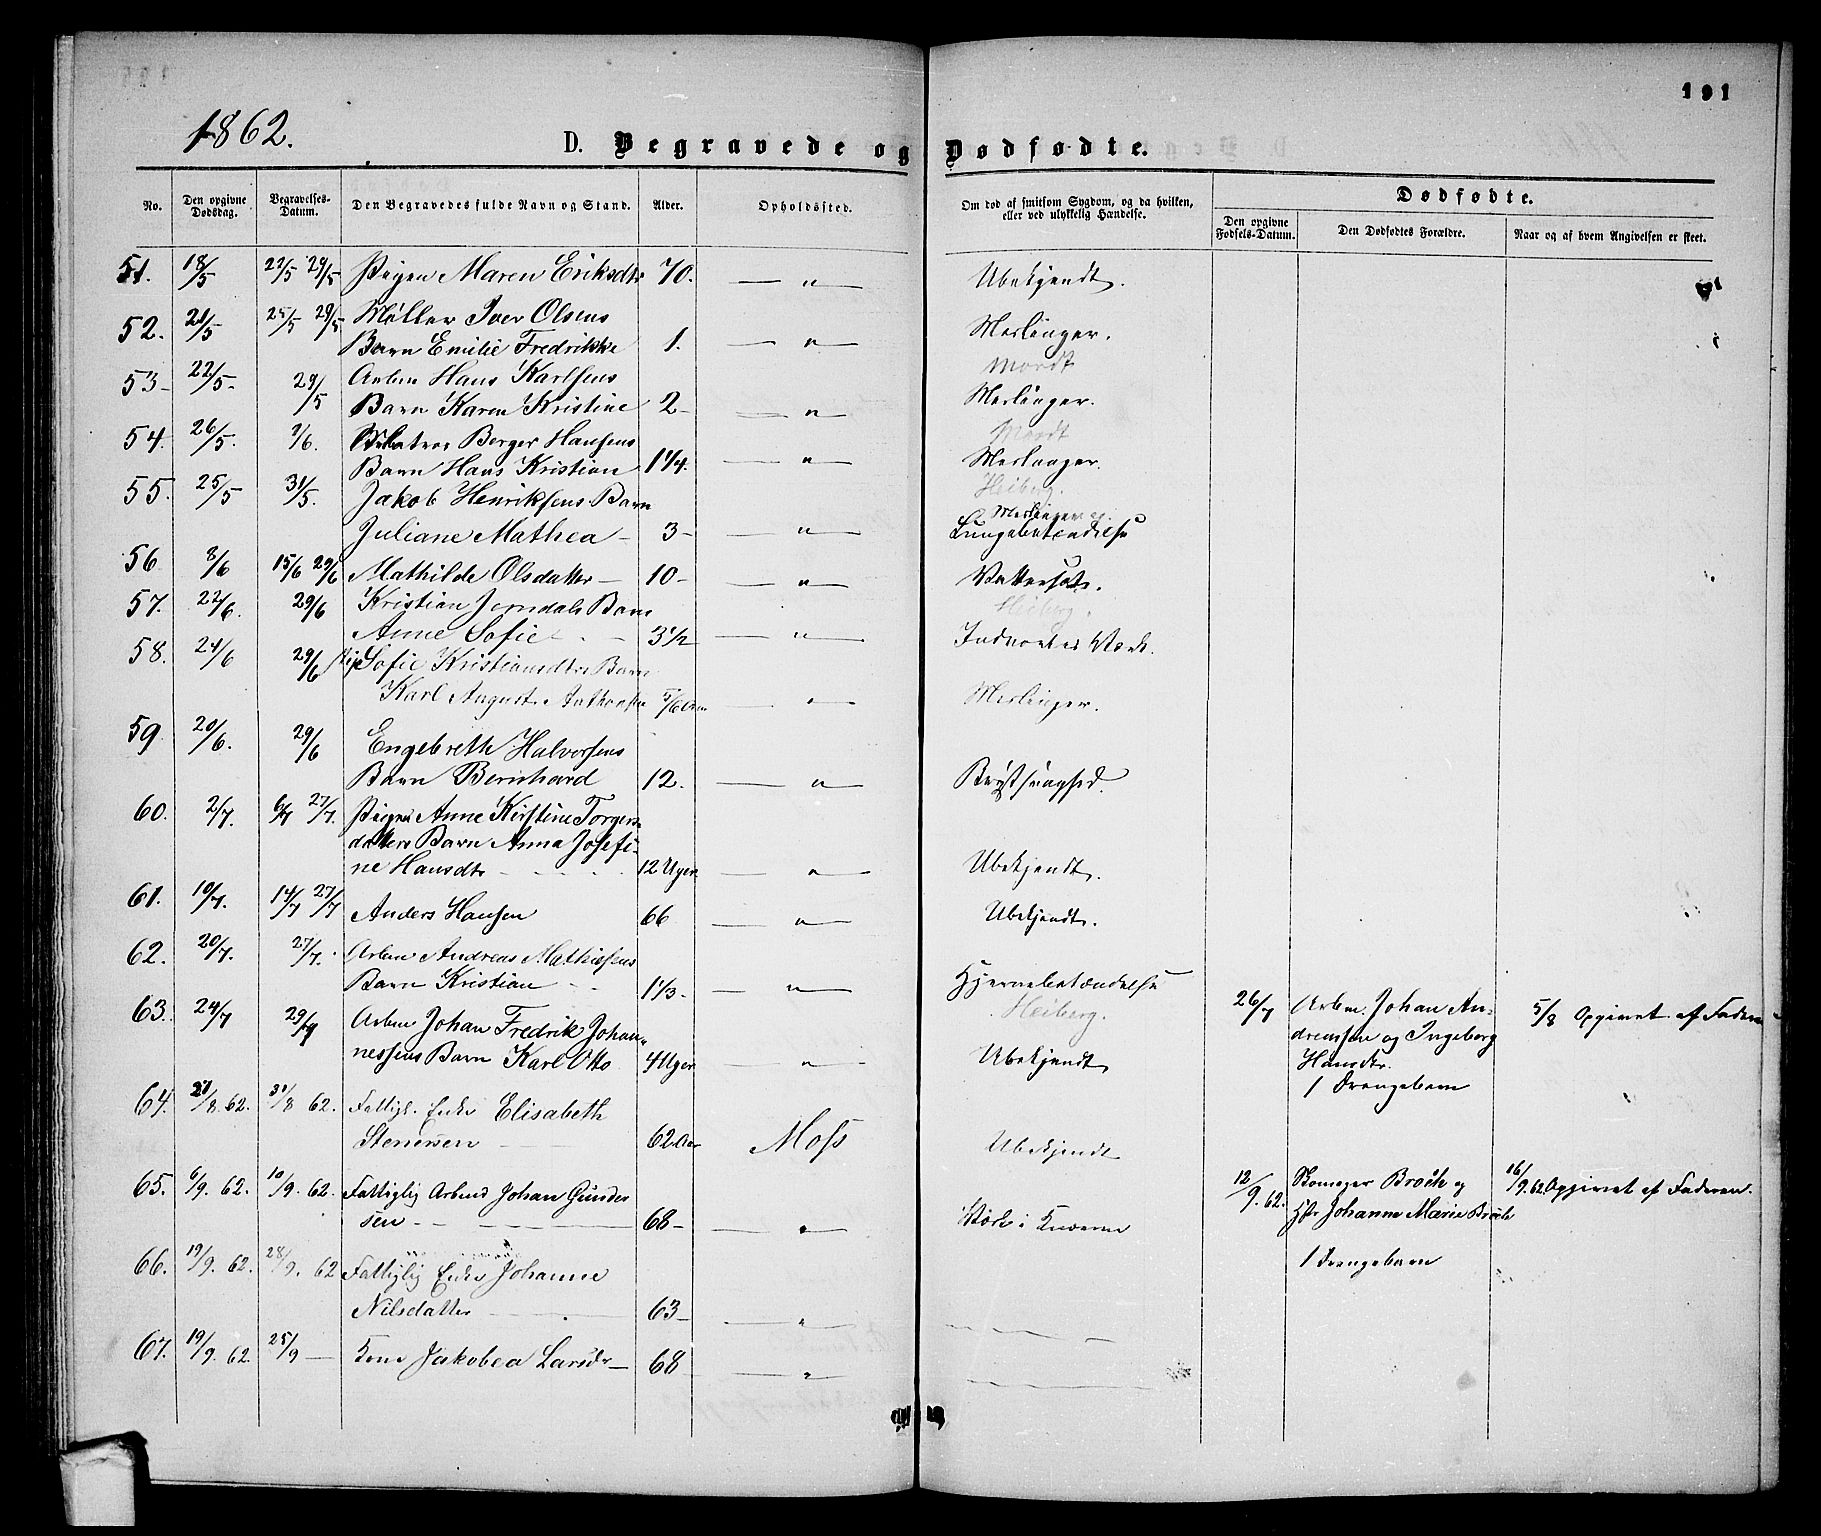 191
1862.
D. Begravede og Dødfødte.
No. Den opgivne Dødsdag. Begravelses-Datum. Den Begravedes fulde Navn og Stand. Alder. Opholdssted. Om død af smitsom Sygdom, og da hvilken, eller ved ulykkelig Hændelse. Dødfødte.
Den opgivne Fødsels-Datum. Den Dødfødtes Forældre. Naar og af hvem Angivelsen er skeet.
51. 18/5 22/5 29/5 Pigen Maren Eriksdtr 70. — " — Ubekjendt.
52. 21/5 25/5 29/5 Møller Iver Olsens
Barn Emilie Fredrikke 1. — " — Meslinger.
Mordt
53 - 22/5. 29/5 Arbm Hans Karlsens
Barn Karen Kristine 2 - — " — Meslinger.
Mordt
54. 26/5. 1/6. Berger Hansens
Barn Hans Kristian 1 1/4. — " — Meslinger.
Heiberg.
55. 25/5 31/5. Jakob Henriksens Barn
Meslinger og
Juliane Mathea - 3 - — " — Lungebetændelse
56 8/6 15/6 29/6 Mathilde Olsdatter — 10 - — " — Vattersot.
Heiberg.
57. 22/6. 29/6 Kristian Jerndals Barn
Anne Sofie - 3 1/2 — " — Indvortes Værk.
58. 24/6 29/6 Pig Sofie Kristiansdtr Barn
Karl August Anthonsen 5/6 — " — Meslinger.
59 20/6. 29/6 Engebreth Halvorsens
Barn Bernhard 12. — " — Brystsvaghed.
60. 2/7. 6/7 27/7. Pigen Anne Kirstine Torgers-
datters Barn Anna Josefi-
ne Hansdtr 12 Uger — " — Ubekjendt.
61. 10/7. 14/7 27/7 Anders Hansen 66 — " — Ubekjendt.
62. 20/7. 27/7. Arbm Andreas Mathiesens
Barn Kristian 1 1/3. — " — Hjernebetændelse
Heiberg.
63. 24/7 29/7 Arbm Johan Fredrik Johan-
nessens Barn Karl Otto 4 Uger — " — Ubekjendt
26/7 Arbm. Johan An-
dreassen og Ingeborg
Hansdtr.
1 Drengebarn
5/8 Opgivet af Faderen
64. 21/8. 62. 31/8 62. Fattigl. Enke Elisabeth
Stenersen 62 Aar Moss Ubekjendt
65. 6/9. 62. 10/9. 62. Fattiglig Arbmd Johan Gunder
sen 68 - — " — Værk i Knæerne
12/9. 62. Skomager Broch og
Hst. Johanne Marie Broch
1 Drengebarn
16/9. 62. Opgivet af Faderen.
66. 19/9. 62. 28/9. 62 Fattiglig Enke Johanne
Nilsdatter 63 — — " — —
67. 19/9. 62. 25/9 — Kone Jakobea Larsdr — 68 — " — —